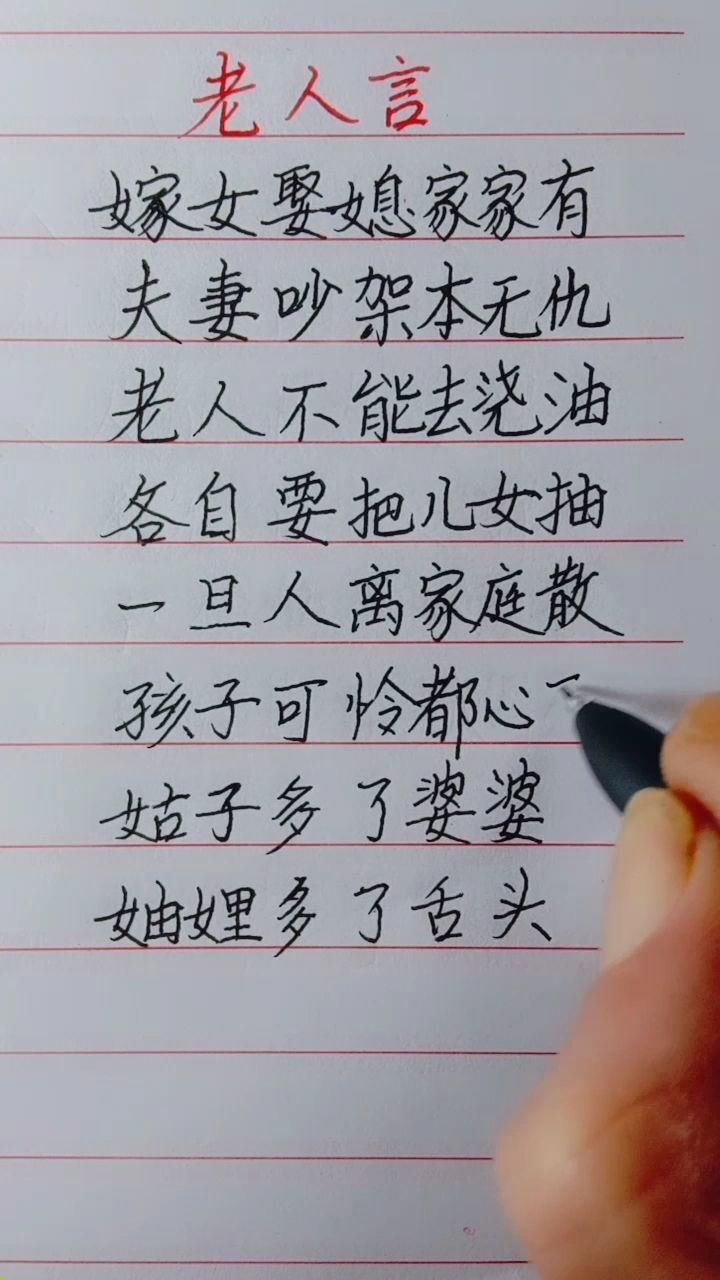 老人言
嫁女娶媳家家有
夫妻吵架本无仇
老人不能去浇油
各自要把儿女抽
一旦人离家庭散
孩子可怜都心
姑子多了婆婆
妯娌多了舌头